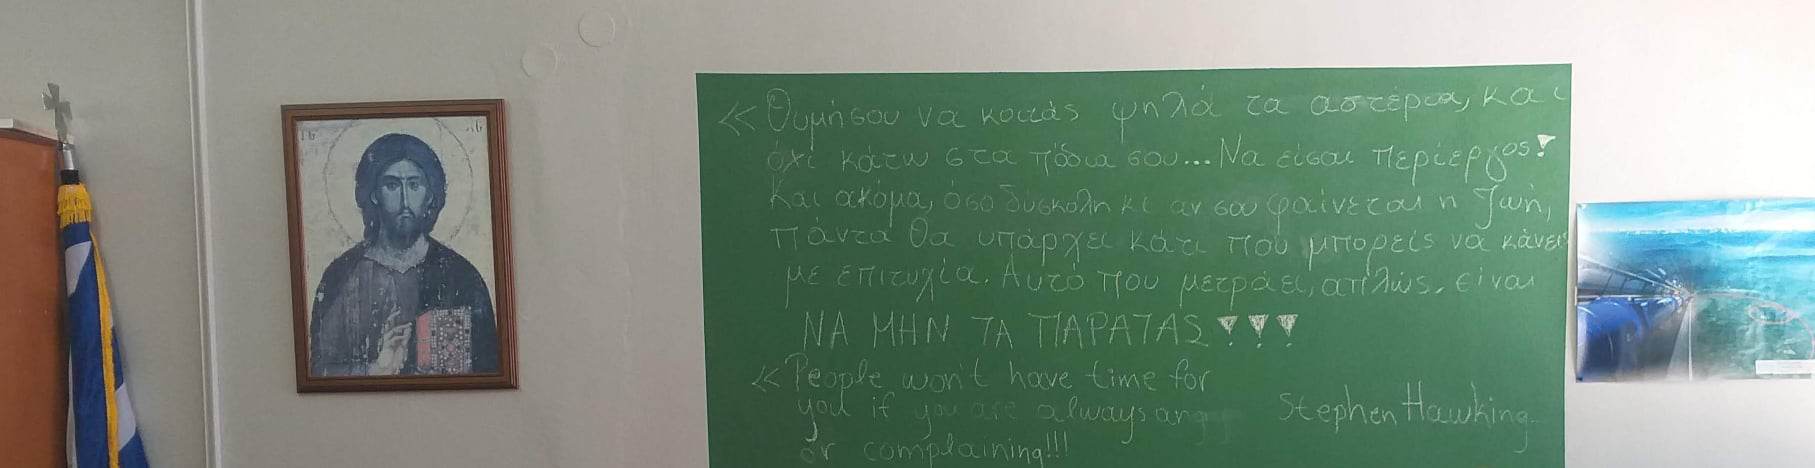 «Θυμήσου να κοιτάς ψηλά τα αστέρια, και
όχι κάτω στα πόδια σου... Να είσαι περίεργος!
Και ακόμα, όσο δύσκολη κι αν σου φαίνεται η ζωή,
πάντα θα υπάρχει κάτι που μπορείς να κάνεις
με επιτυχία. Αυτό που μετράει, απλώς, είναι
ΝΑ ΜΗΝ ΤΑ ΠΑΡΑΤΑΣ!!!
«People won't have time for
you if you are always angry
Stephen Hawking
or complaining!!!